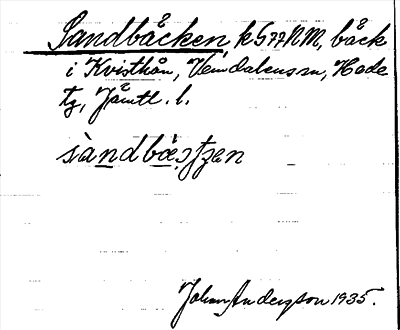 Sandbäcken, k577NM, bäck
i Kvisthån, Vemdalens sn, Hede
tg, Jämtl. l.
sàndbæ̣ʃtʃen
Johan Anderzson 1935.